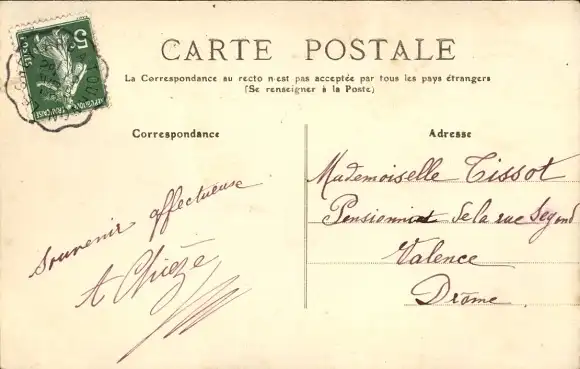 CARTE POSTALE
La Correspondance au recto n'est pas acceptée par tous les pays étrangers
(Se renseigner à la Poste)
Correspondance
Adresse
5c
POSTES
REPUBLIQUE FRANÇAISE
Souvenir affectueuse
A Chièze
Mademoiselle Tissot
Pensionnat de la rue Segond
Valence
Drôme